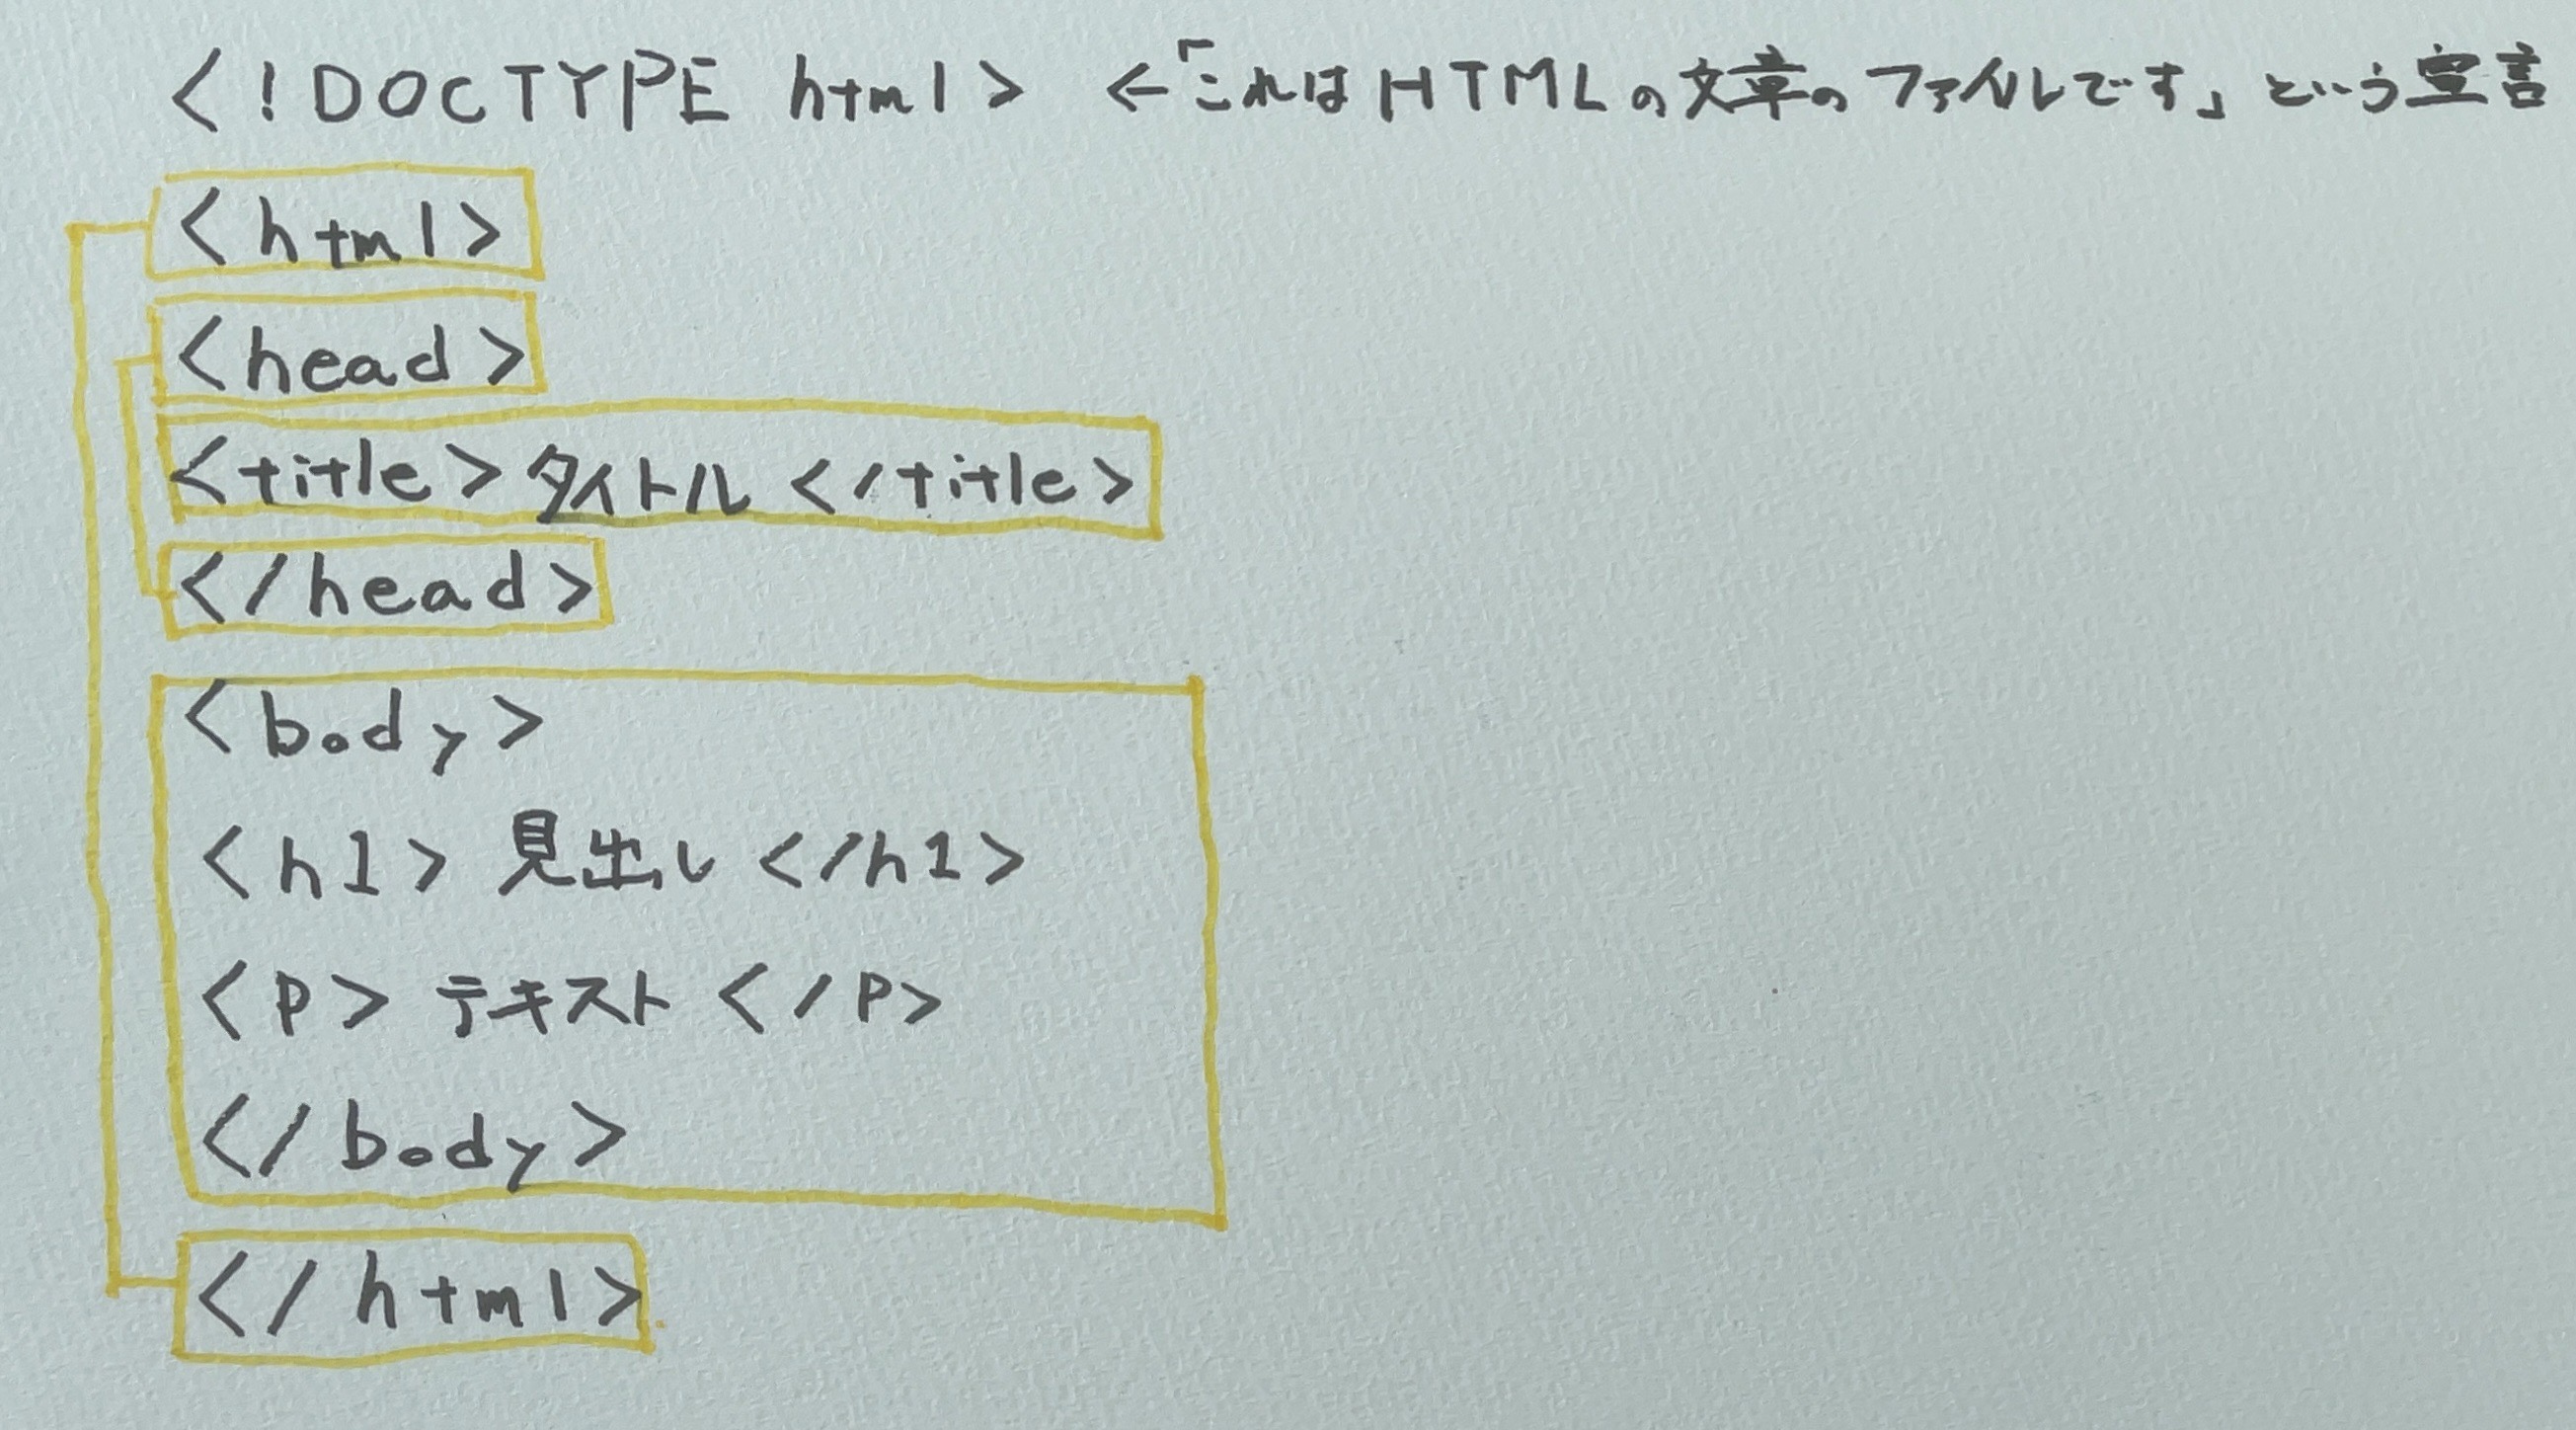 <!DOCTYPE html> ←「これはHTMLの文章のファイルです」という宣言
<html>
<head>
<title>タイトル</title>
</head>
<body>
<h1>見出し</h1>
<p>テキスト</p>
</body>
</html>